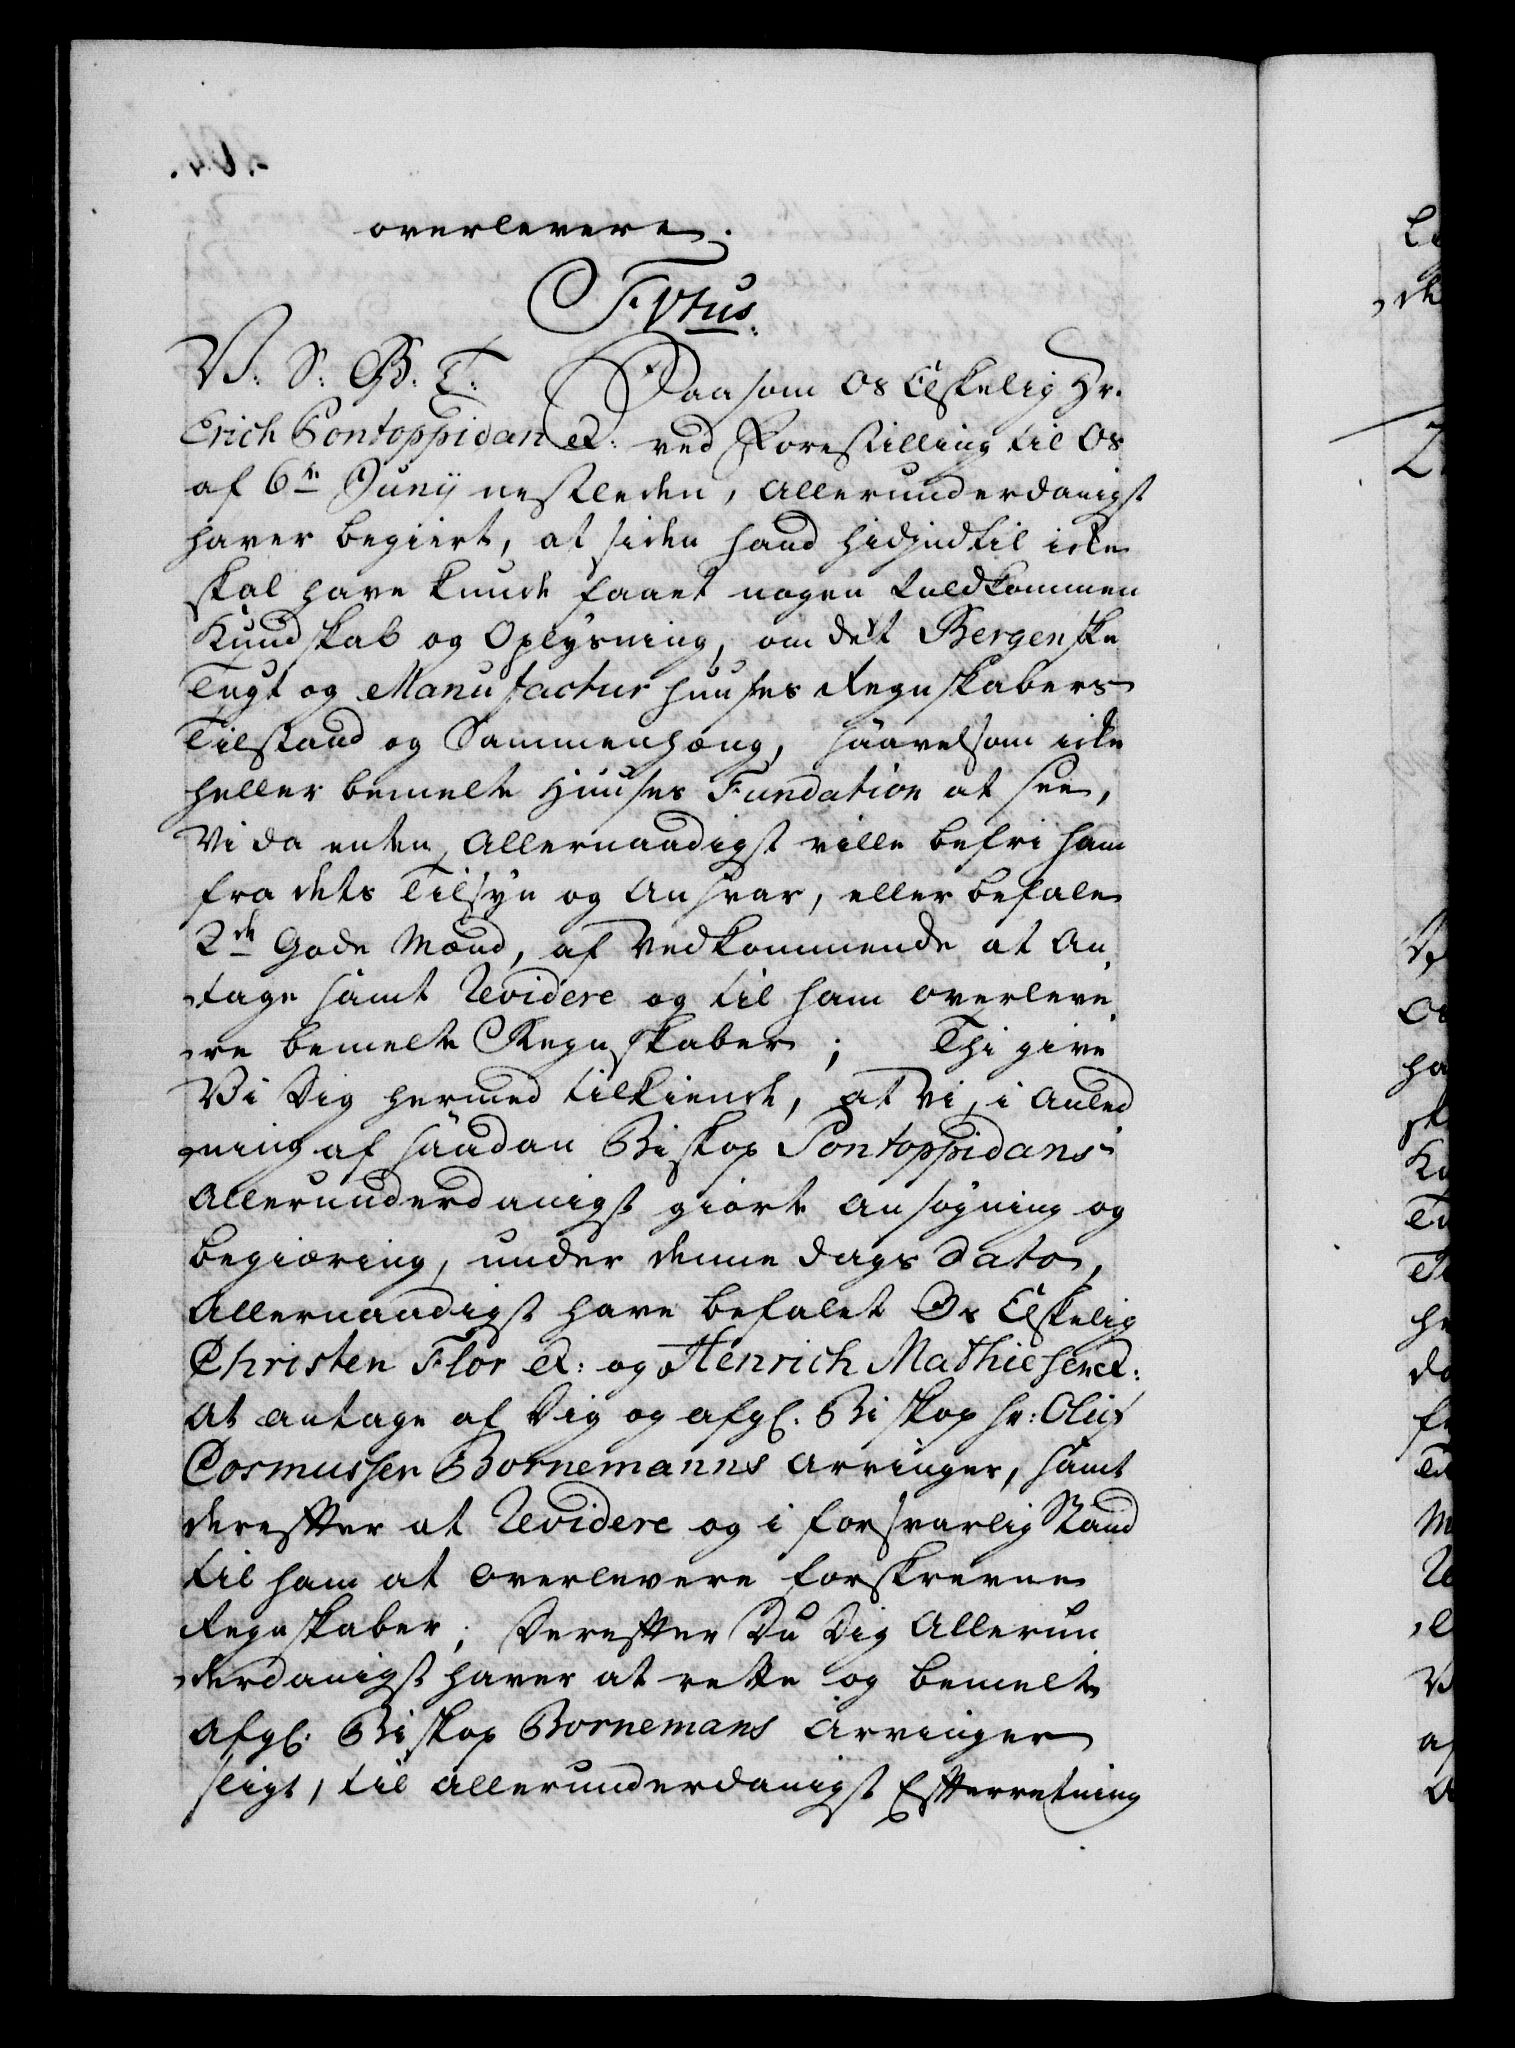 overlevere.
F. Vtus.
V: S: G: T: Saasom Os Elskelig Hr.
Erich Pontoppidan et: ved Forestilling til Os
af 6te Junij nestleden, Allerunderdanigst
haver begiert, at siden hand hidjndtil icke
skal have kunde faaet nogen Fuldkommen
Kundskab og Oplysning, om det Bergenske
Tugt og Manufactur Huuses Regnskabers
Tilstand og Sammenhæng, saavelsom icke
heller bemelte Huuses Fundation at see,
Vi da enten Allernaadigst ville befri ham
fra dets Tilsyn og Ansvar, eller befale
2de Gode Mænd, af Vedkommende at An-
tage samt Revidere og til ham overleve-
re bemelte Regnskaber; Thi give
Vi Dig hermed tilkiende, at Vi, i Anled
ning af saadan Biskop Pontoppidans
Allerunderdanigst giorte Ansøgning og
Begiæring, under denne Dags Dato,
Allernaadigst have befalet Os Elskelig
Christen Flor et: og Henrich Mathiesen et:
At antage af Dig og afgl. Biskop Hr: Oluf
Cosmussen Bornemanns Arvinger, samt
derefter at Revidere og i forsvarlig Stand
til ham at overlevere forskrevne
Regnskaber; Derefter Du Dig Allerun
derdanigst haver at rette og bemelte
Afgl. Biskop Bornemans Arvinger
sligt, til Allerunderdanigst Efterretning